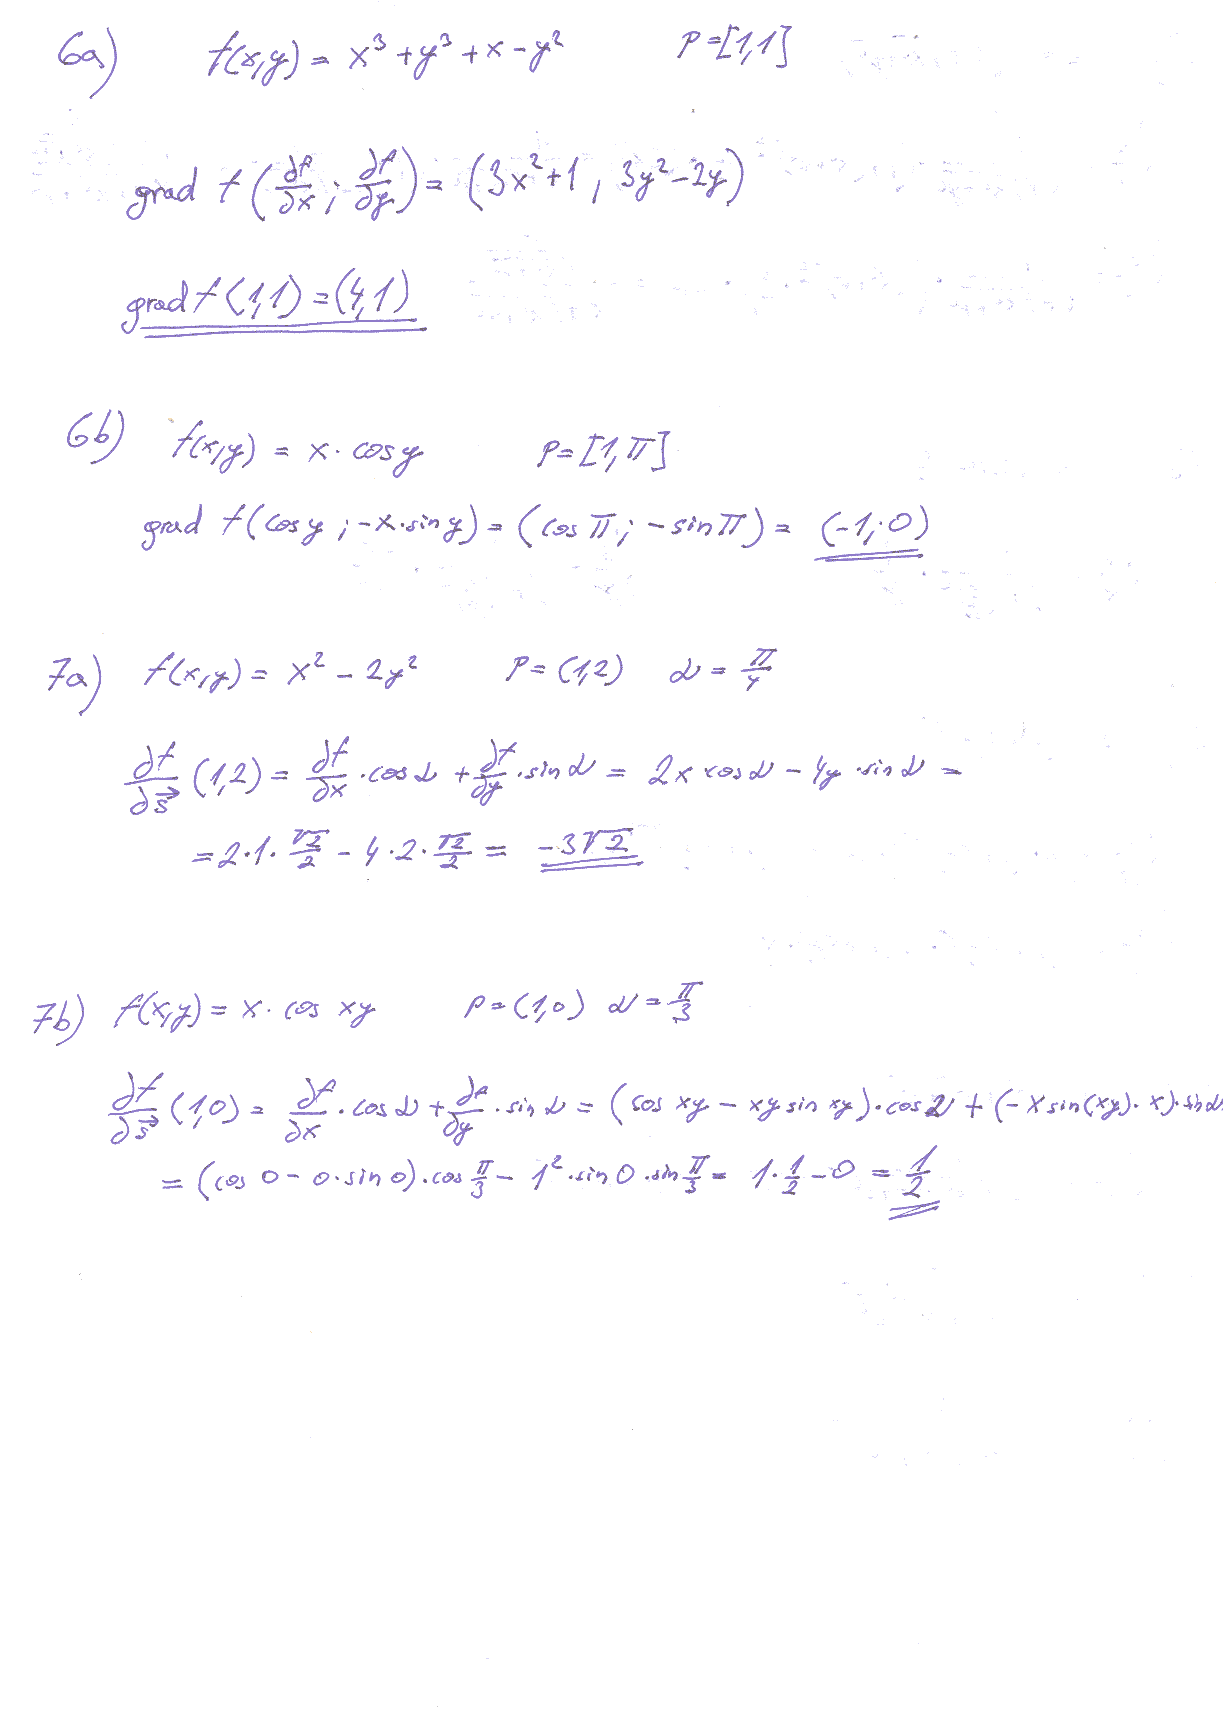 6a) f(x,y) = x³ + y³ + x - y² P = [1,1]
grad f (∂f/∂x ; ∂f/∂y) = (3x² + 1 , 3y² - 2y)
grad f (1,1) = (4,1)
6b) f(x,y) = x · cos y P = [1,π]
grad f (cos y ; -x·sin y) = (cos π ; - sin π) = (-1; 0)
7a) f(x,y) = x² - 2y² P = (1,2) α = π/4
∂f/∂s⃗ (1,2) = ∂f/∂x · cos α + ∂f/∂y · sin α = 2x · cos α - 4y · sin α =
= 2·1·√2/2 - 4·2·√2/2 = -3√2
7b) f(x,y) = x · cos xy P = (1,0) α = π/3
∂f/∂s⃗ (1,0) = ∂f/∂x · cos α + ∂f/∂y · sin α = (cos xy - xy sin xy) · cos α + (-x sin(xy) · x) · sin α
= (cos 0 - 0·sin 0) · cos π/3 - 1² · sin 0 · sin π/3 = 1·1/2 - 0 = 1/2